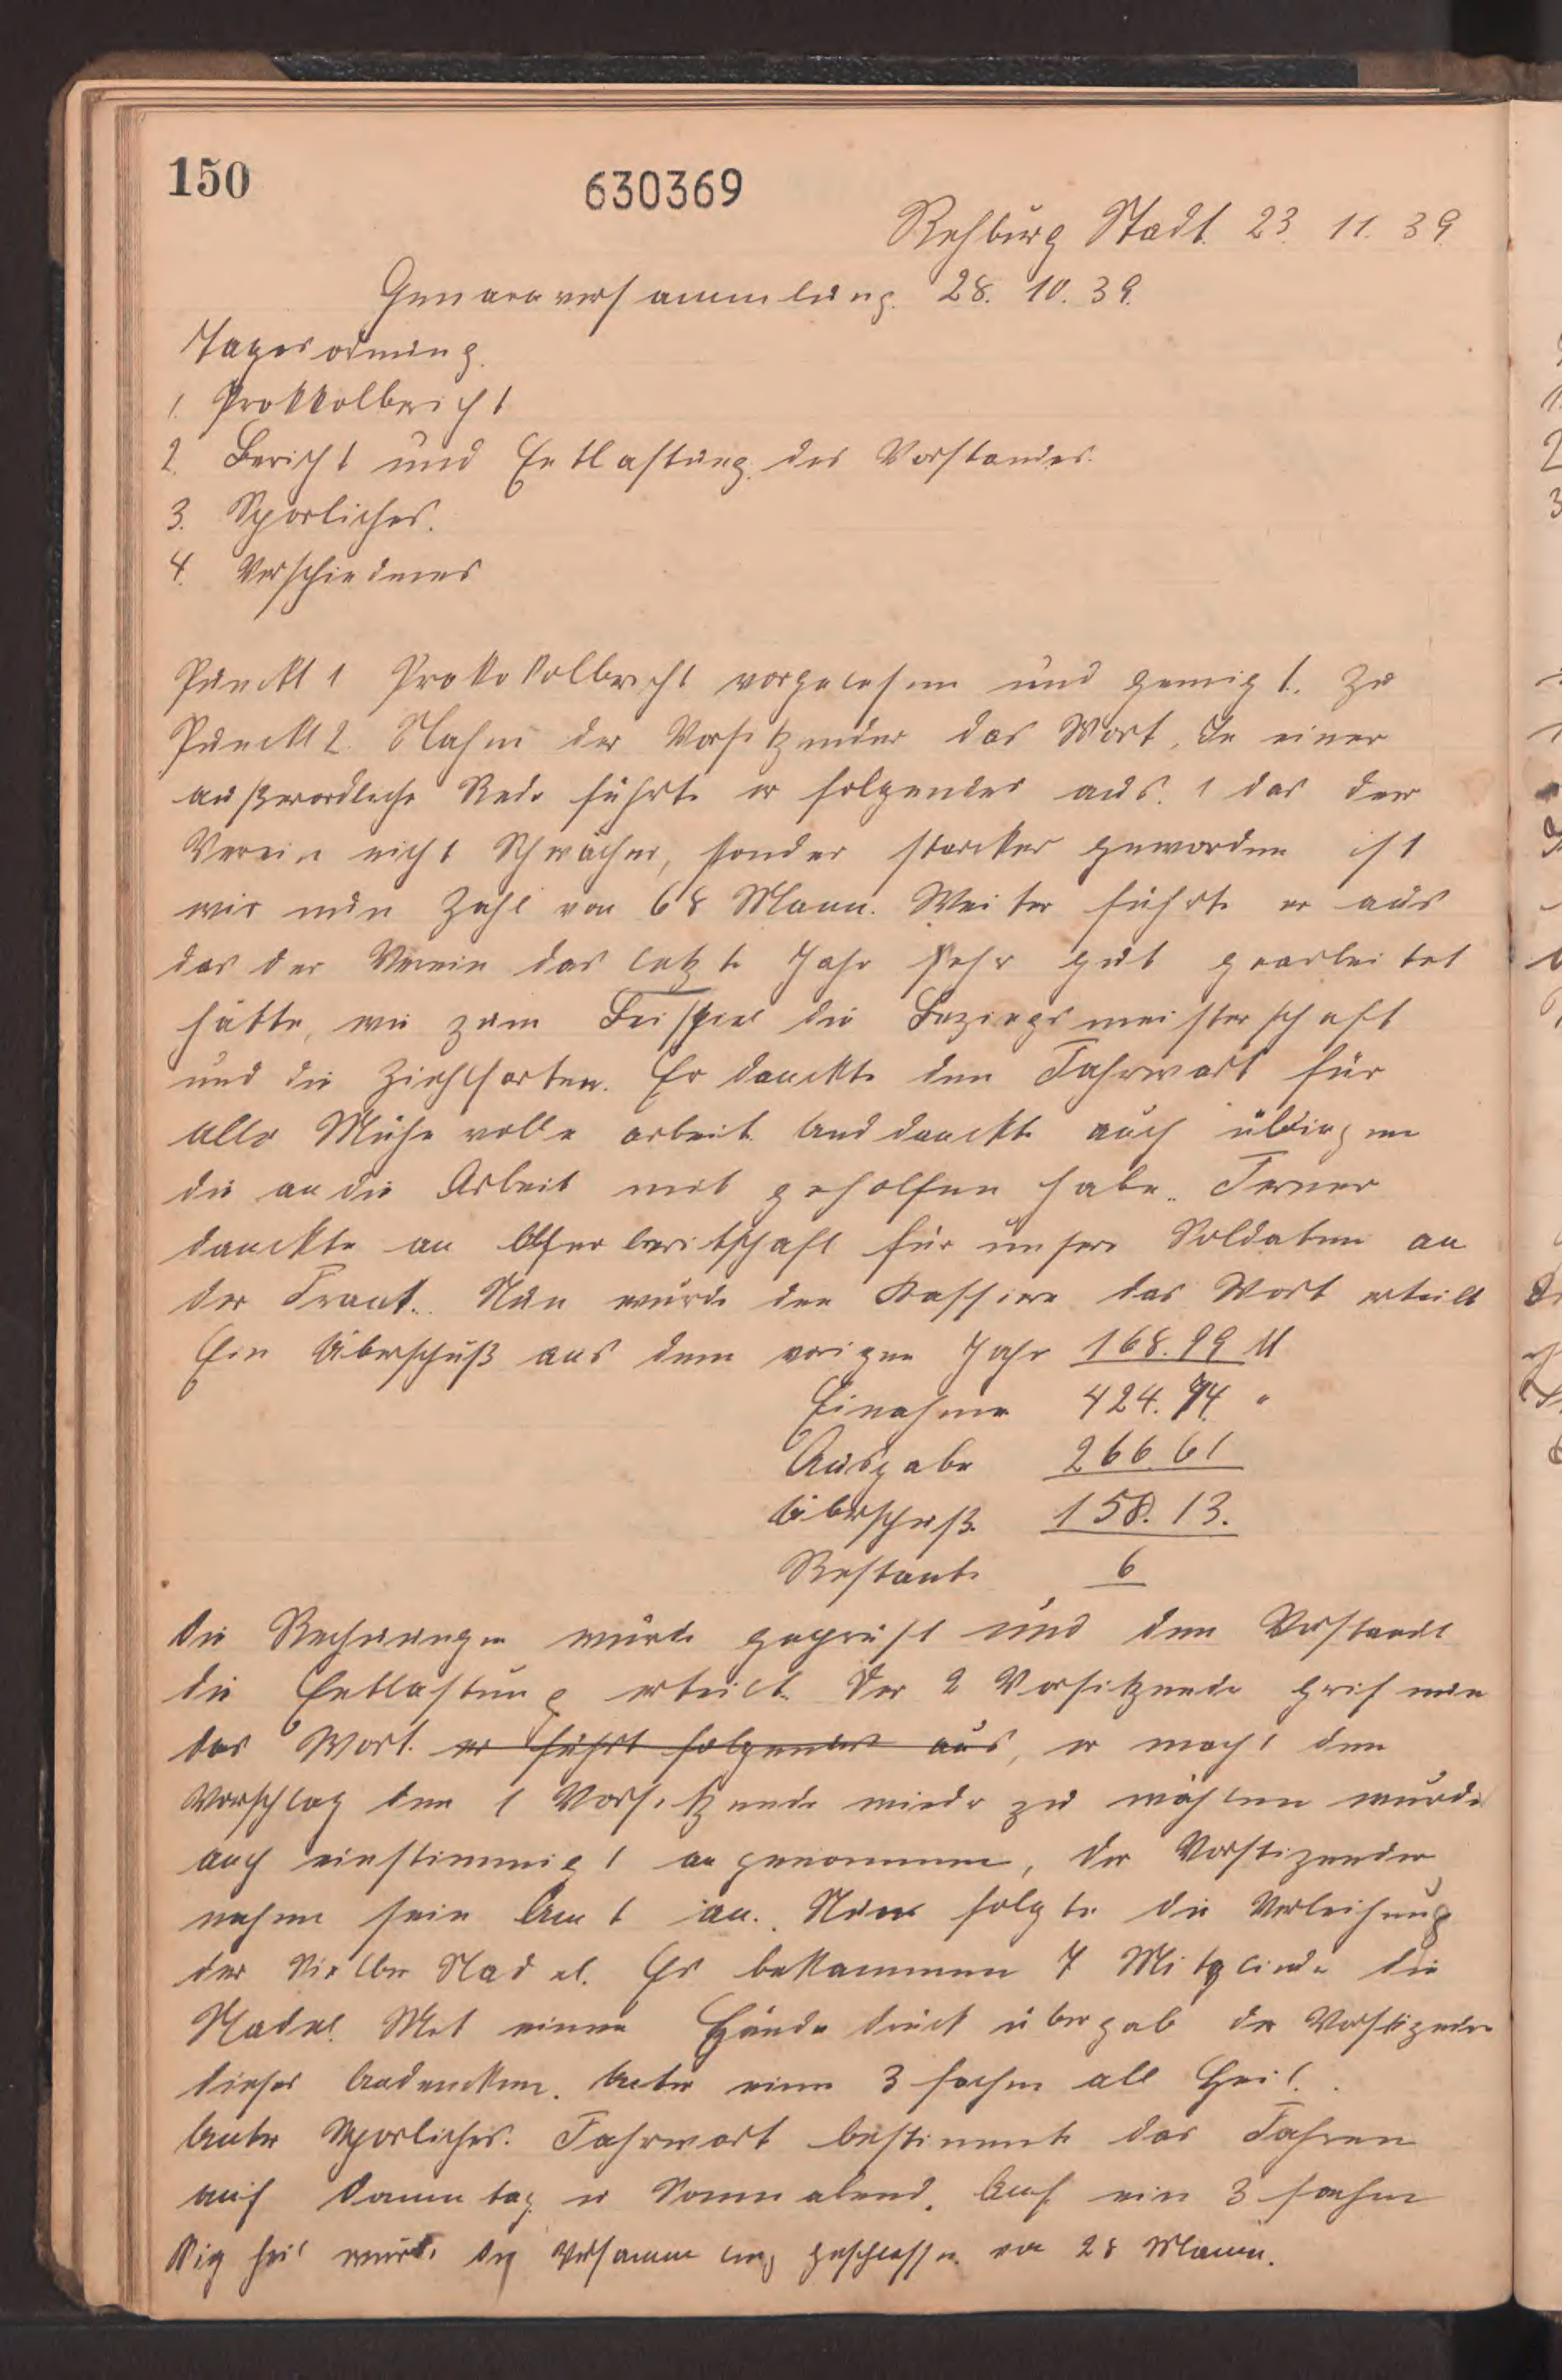 150
630369
Rehburg Stadt 23. 11. 39.
Generaversammlung. 28. 10. 39.
Tagesordnung.
1. Prokkolbericht
2. Bericht und Entlastung des Vorstandes.
3. Sporliches.
4. Verschiedenes
Punckt 1 Prokokolbericht vorgelesen und genigt. Zu
Punckt 2. Nahm der Vorsitzender das Wort. In einer
außerordliche Rede führte er folgendes aus. 1 das der
Verein nicht Schwächer, sonder starcker geworden ist
wir nun Zahl von 68 Mann. Weiter führte er aus
das der Verein das letzte Jahr sehr gut gearbeitet
hätte, wie zum Beispiel die Bezirgsmeisterschaft
und die Ziehlfarten. Er danckte den Fahrwart für
alle Mühe volle arbeit. Und danckte auch übrigen
die an die Arbeit mit geholfen habe. Ferner
danckte an Opferberitschaft für unsere Soldaten an
der Front. Nun wurde den Kassiere das Wort erteilt
Ein Überschuß aus dem vorigen Jahr 168.99 M
Einahme 424.74 "
Ausgabe 266.61
Überschuß 158.13.
Restante 6
Die Rechnungen wurde geprüft und dem Vorstandt
die Entlastung erteilt. Der 2 Vorsitzende grif nun
das Wort. er führt folgendes aus, er macht den
Vorschlag den 1 Vorsitzende wieder zu wählen wurde
auch einstimmigt angenommen, der Vorstizender
nahm sein Amt an. Nun folgte die Verleihung
der Silber Nadel. Es bekkammen 7 Mitgliede die
Nadel. Mit einen Hände drück übergab der Vorstizender
dieses Andencken. Unter einen 3 fachen all Heil.
Unter Sporliches. Fahrwart bestimmte das Fahren
auf Sonntag u Sonnabend. Auf ein 3 fachen
Sig heil wurde die Versammlung geschlossen von 28 Mann.